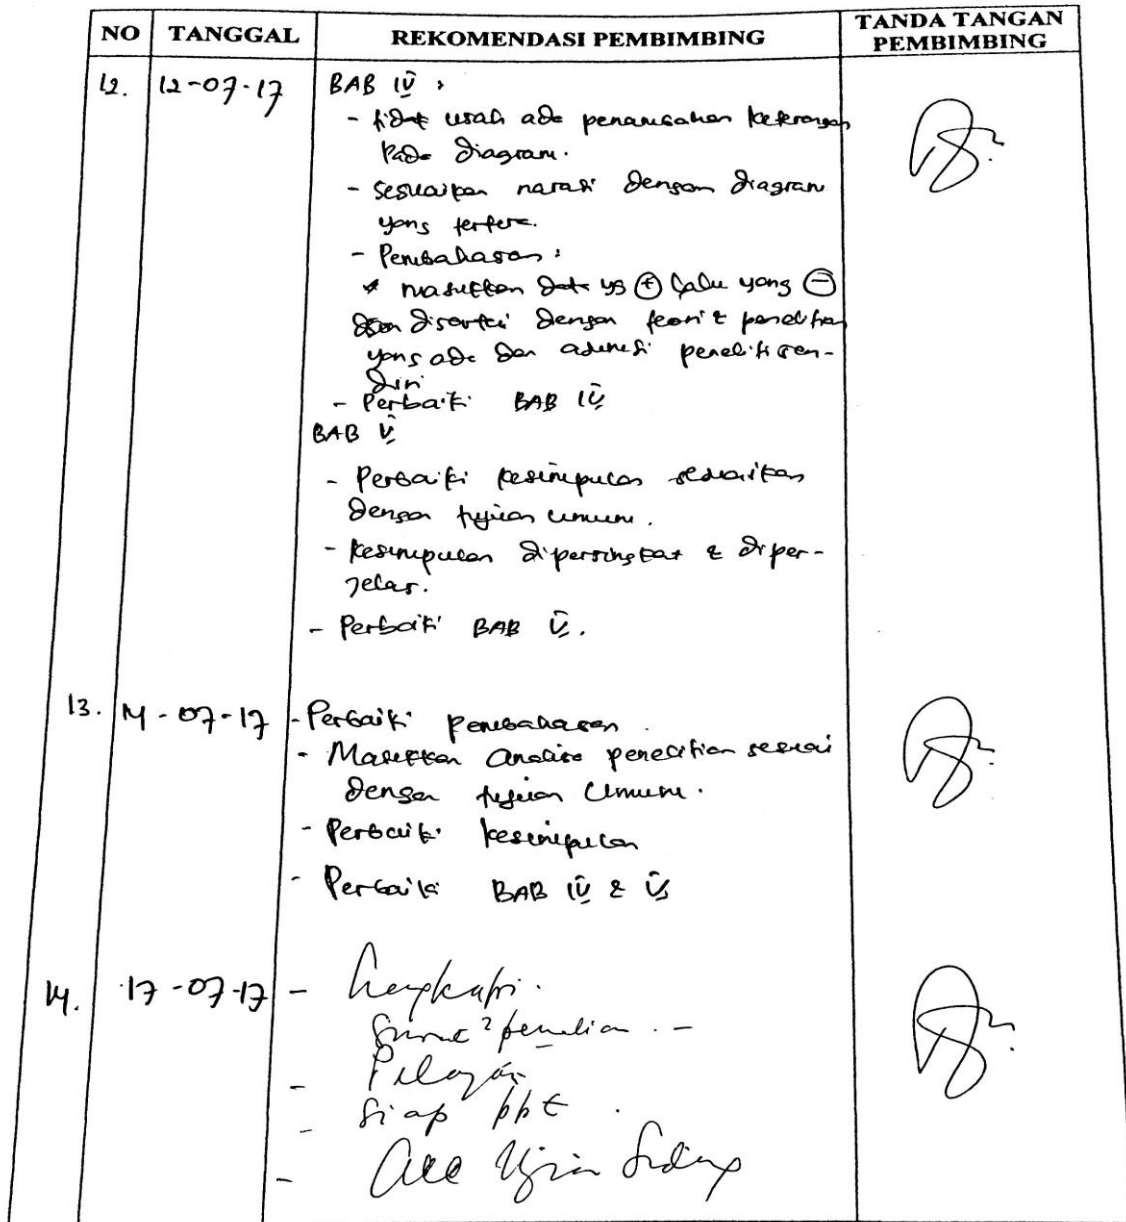 NO TANGGAL REKOMENDASI PEMBIMBING TANDA TANGAN PEMBIMBING
12. 12-07-17 BAB IV :
- tidak usah ada penamaan keterangan
pada diagram.
- sesuaikan narasi dengan diagram
yang tertera.
- Pembahasan :
* masukkan data yg (+) lalu yang (-)
disertai dengan teori & penelitian
yang ada dan asumsi peneliti sen-
diri
- Perbaiki BAB IV
BAB V
- Perbaiki kesimpulan sesuaikan
dengan tujuan umum.
- kesimpulan dipersingkat & diper-
jelas.
- Perbaiki BAB V.
13. 14-07-17 - Perbaiki pembahasan.
- Masukkan analisa penelitian sesuai
dengan tujuan umum.
- Perbaiki kesimpulan
- Perbaiki BAB IV & V
14. 17-07-17 - Lengkapi.
Surat² penelitian. -
- Pelajari
- Siap ppt.
- acc Ujian Sidang